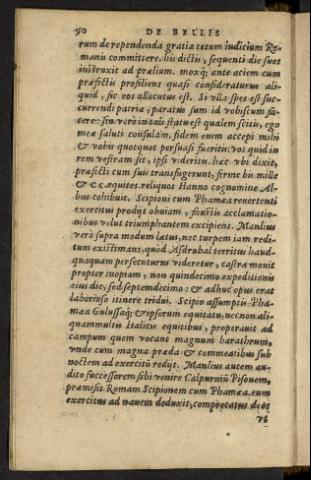 90 DE BELLIS
rum de rependenda gratia totum iudicium Ro-
manis committere. his dictis, sequenti die suos
instruxit ad prælium. moxq; ante aciem cum
præfectis prosiliens quasi consideraturus ali-
quid, sic eos allocutus est. Si vlla spes est suc-
currendi patriæ, paratus sum id vobiscum fa-
cere: sin verò in tali statu est qualem scitis, ego
meæ saluti consulam. fidem enim accepi mihi
& vobis quotquot persuasi fueritis: vos quid in
rem vestram sit, ipsi videritis. hæc vbi dixit,
præfecti cum suis transfugerunt, ferme bis mille
& cc. equites. reliquos Hanno cognomine Al-
bus cohibuit. Scipioni cum Phamæa reuertenti
exercitus prodijt obuiam, faustis acclamatio-
nibus velut triumphantem excipiens. Manlius
verò supra modum lætus, nec turpem iam redi-
tum existimans, quòd Asdrubal territus haud-
quaquam persecuturus videretur, castra mouit
propter inopiam, non quindecimo expeditionis
eius die, sed septemdecimo: & adhuc opus erat
laborioso itinere tridui. Scipio assumptis Pha-
mæa Gulussaq; & ipsorum equitatu, necnon ali-
quammultis Italicis equitibus, properauit ad
campum quem vocant magnum barathrum,
vnde cum magna præda & commeatibus sub
noctem ad exercitũ redijt. Manlius autem au-
dito successorem sibi venire Calpurniũ Pisonem,
præmisit Romam Scipionem cum Phamæa. eum
exercitus ad nauem deduxit, comprecatus deos
vt